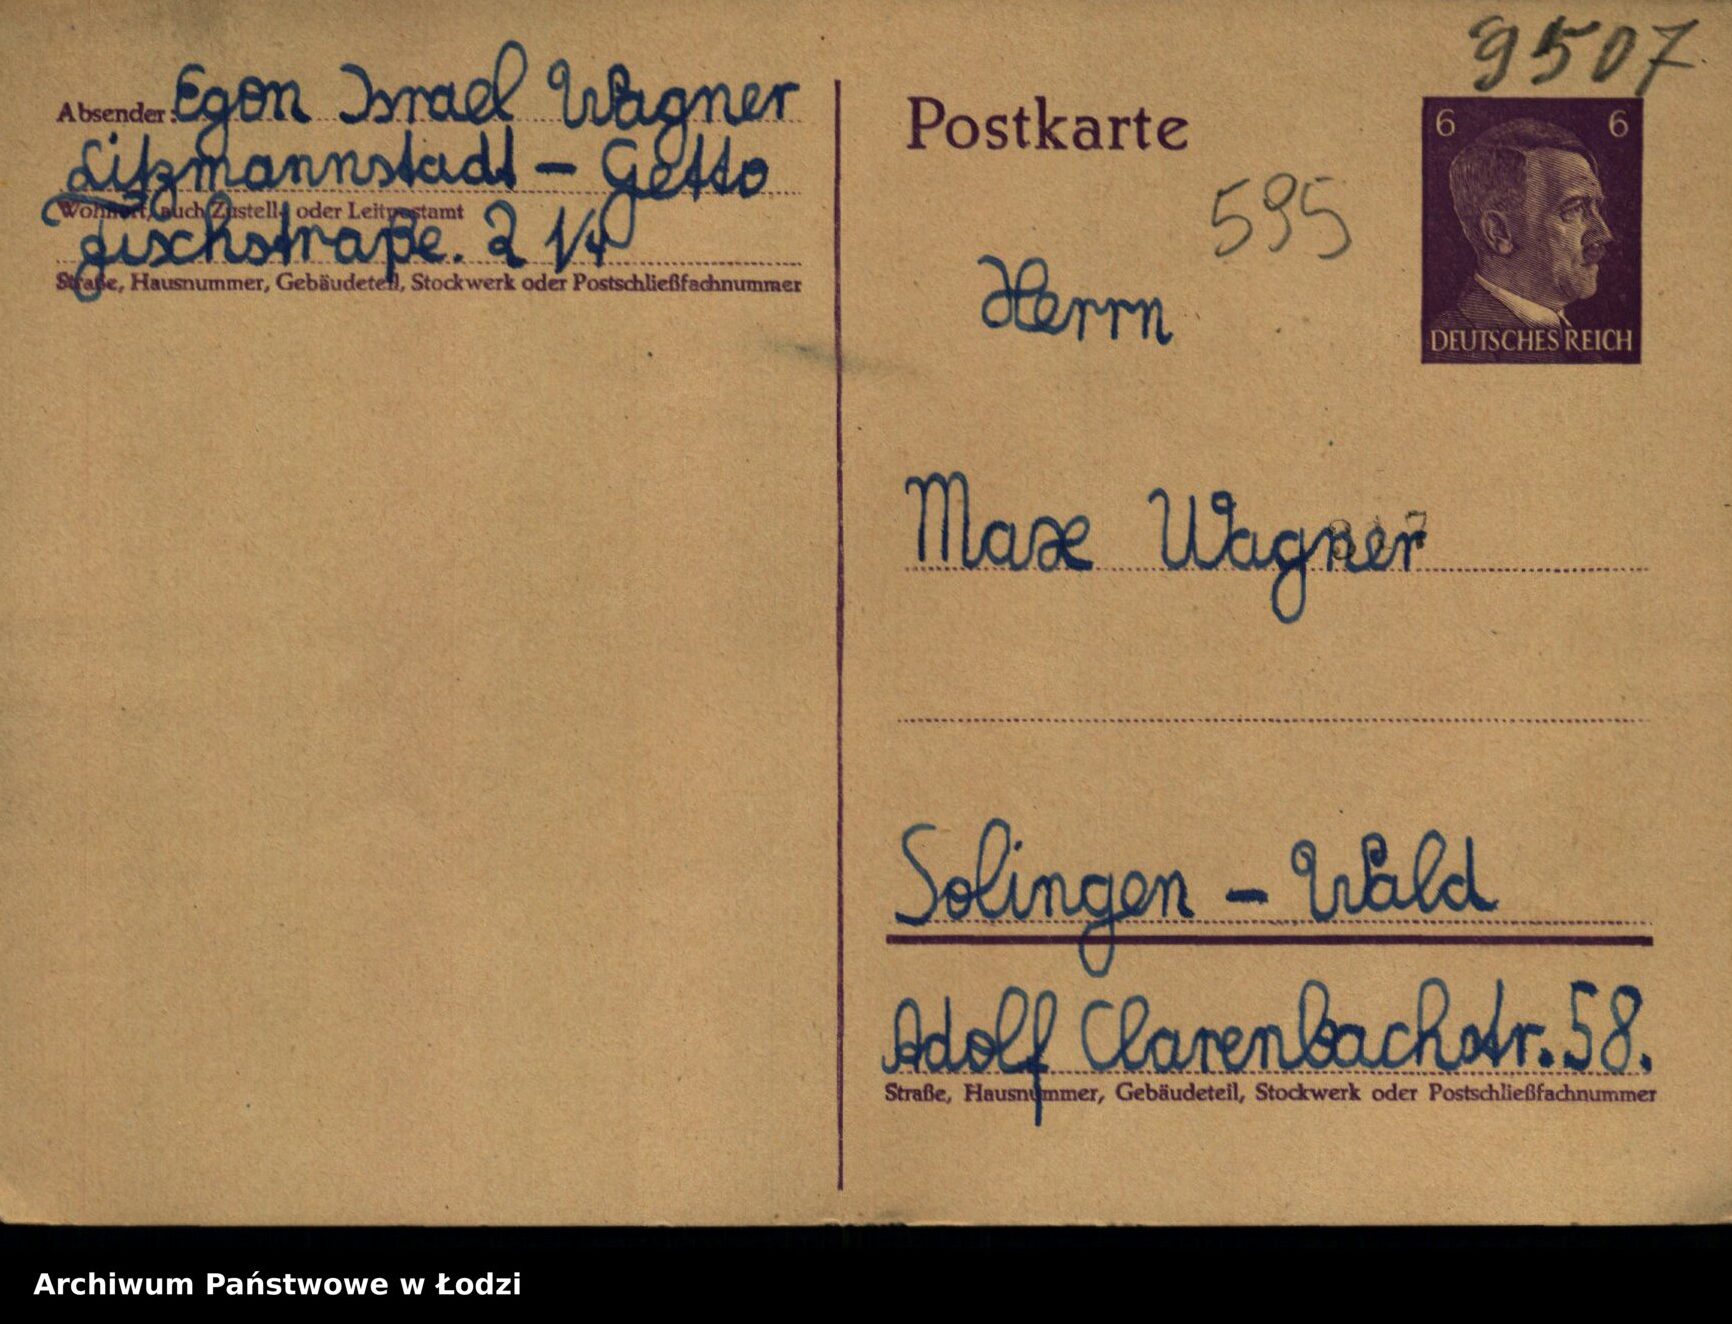 Absender: Egon Israel Wagner
Litzmannstadt – Getto
Wohnort, auch Zustell- oder Leitpostamt
Fischstraße. 21/4
Straße, Hausnummer, Gebäudeteil, Stockwerk oder Postschließfachnummer
9507
Postkarte
6 6
DEUTSCHES REICH
595
Herrn
Max Wagner
Solingen – Wald
Adolf Clarenbachstr. 58.
Straße, Hausnummer, Gebäudeteil, Stockwerk oder Postschließfachnummer
Archiwum Państwowe w Łodzi